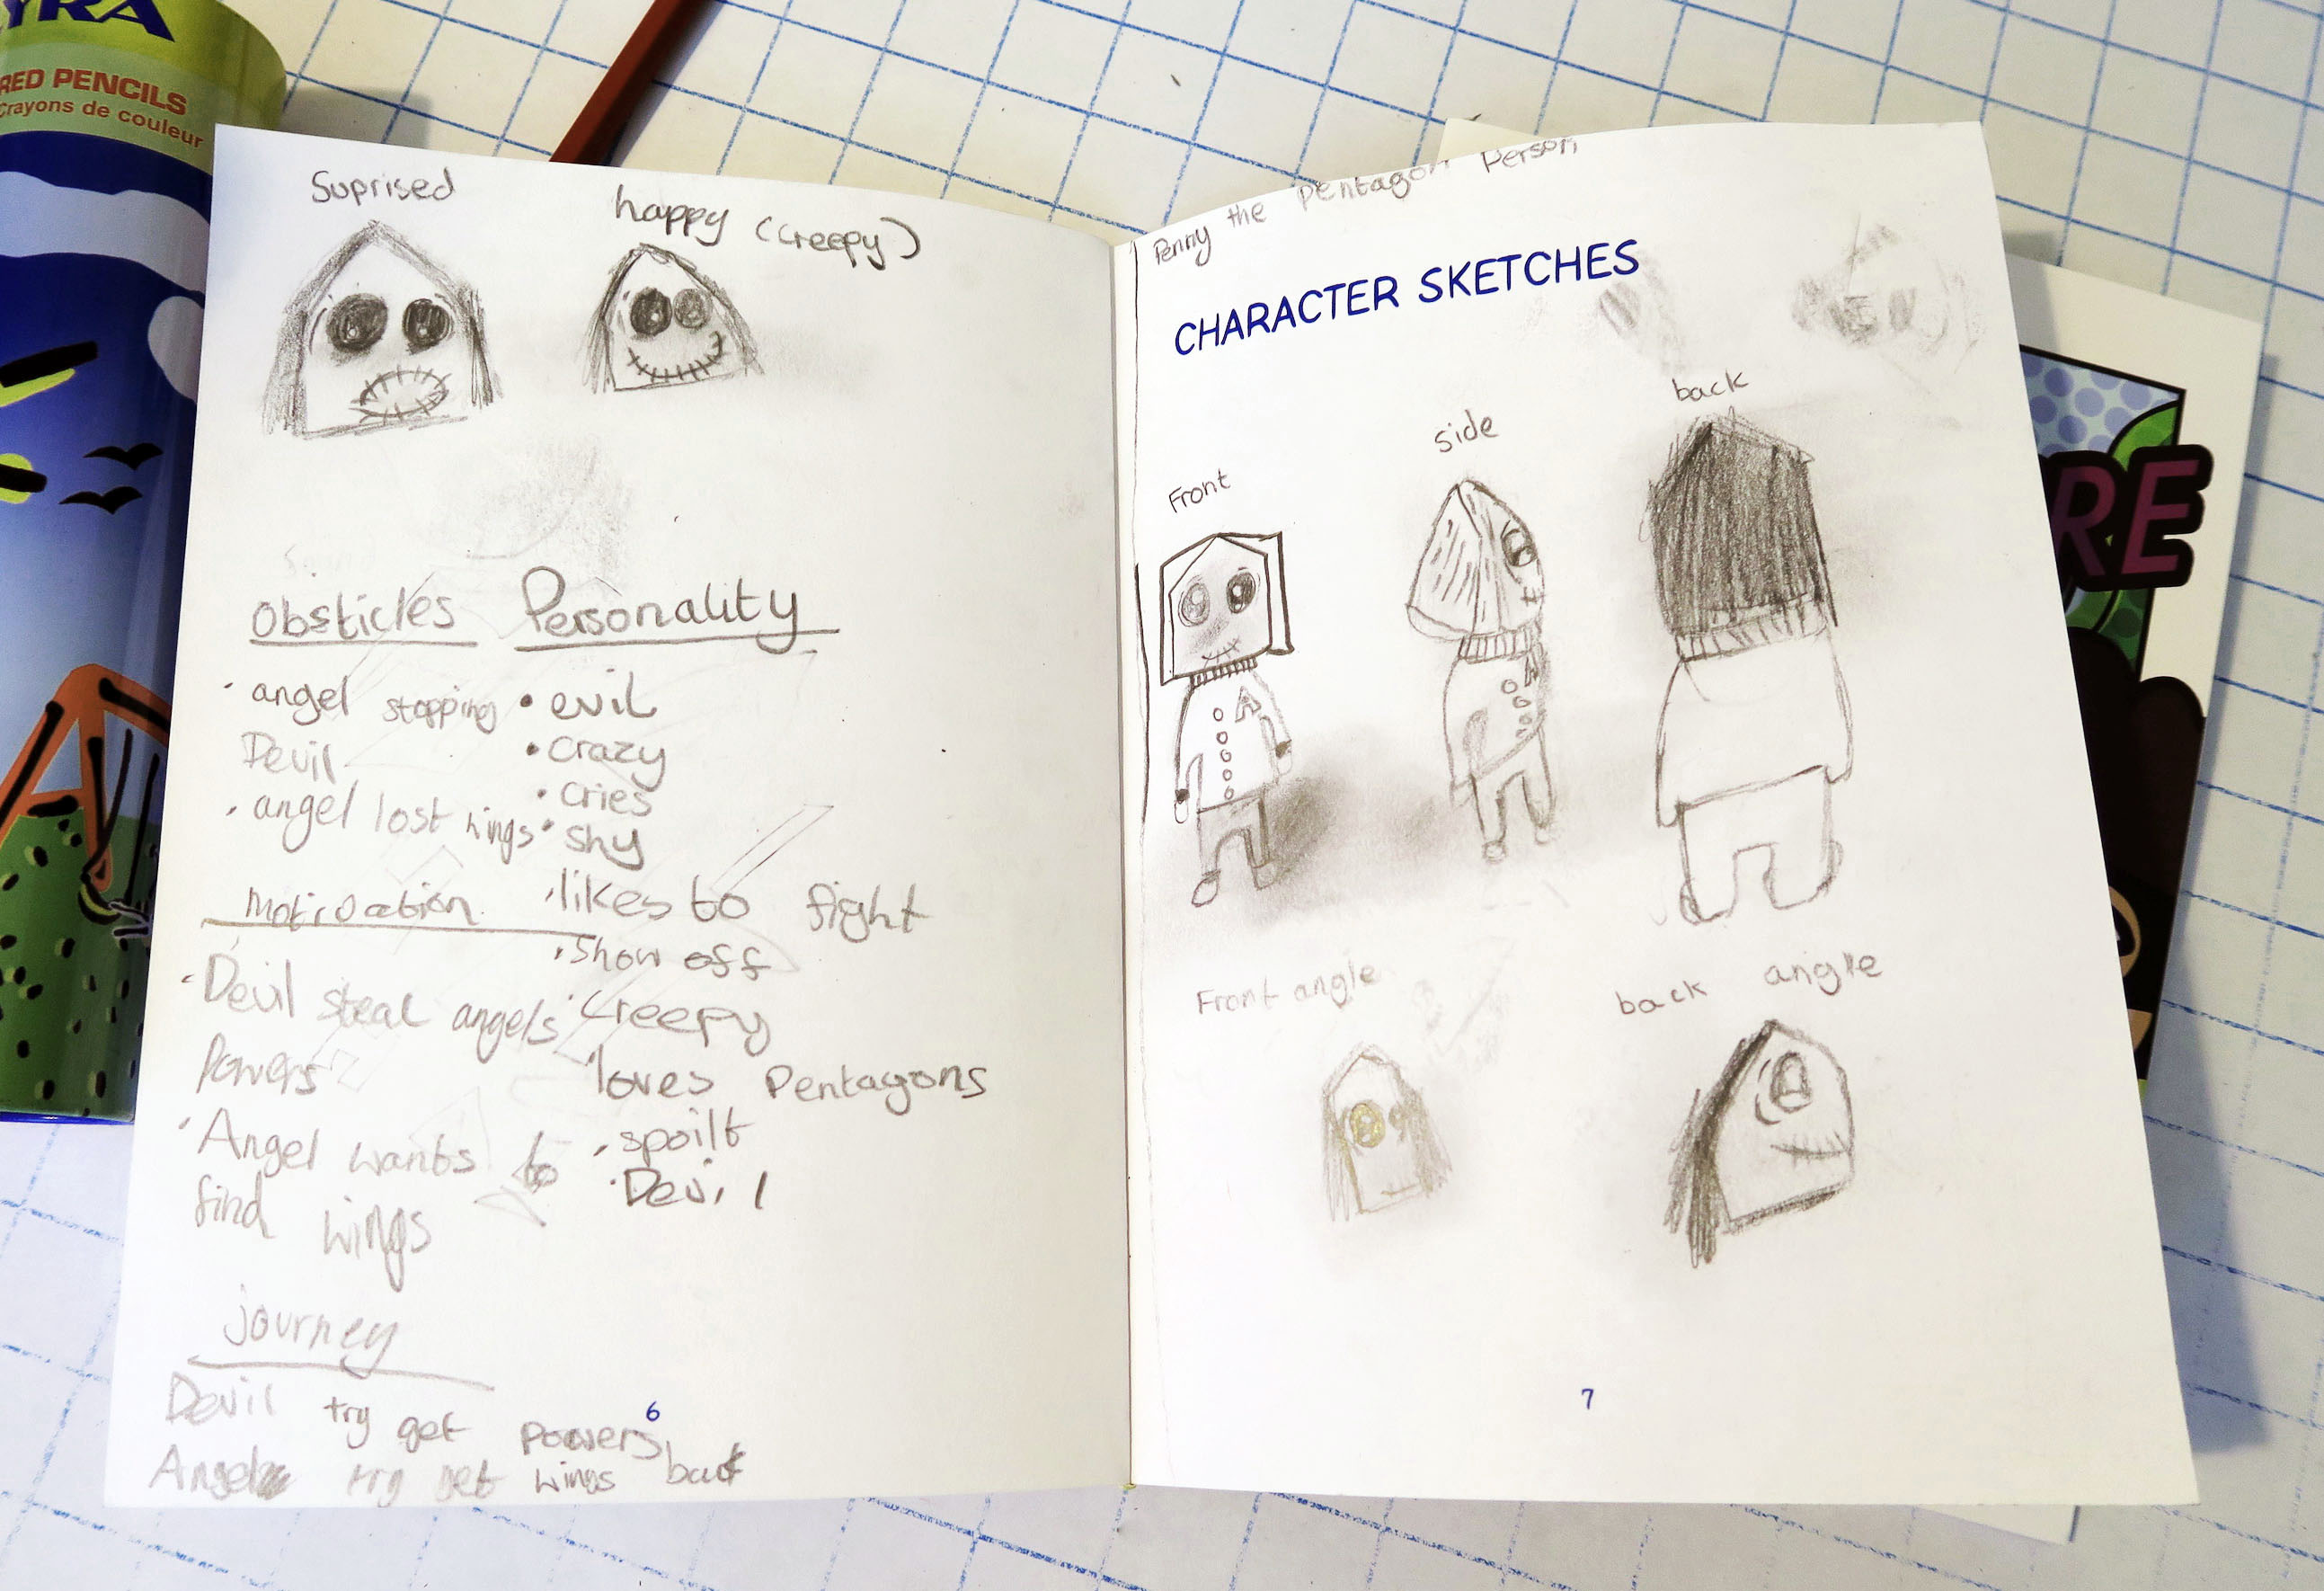 YRA
RED PENCILS
Crayons de couleur
Suprised
happy (creepy)
Obsticles
· angel stopping
Devil
· angel lost wings
Motivation
· Devil steal angels
Powers
· Angel wants to
find wings
journey
Devil try get powers
Angel try get wings back
Personality
• evil
• crazy
• cries
• shy
· likes to fight
· show off
· creepy
· loves Pentagons
· spoilt
· Devil
6
Penny the Pentagon Person
CHARACTER SKETCHES
Front
side
back
Front angle
back angle
7
RE